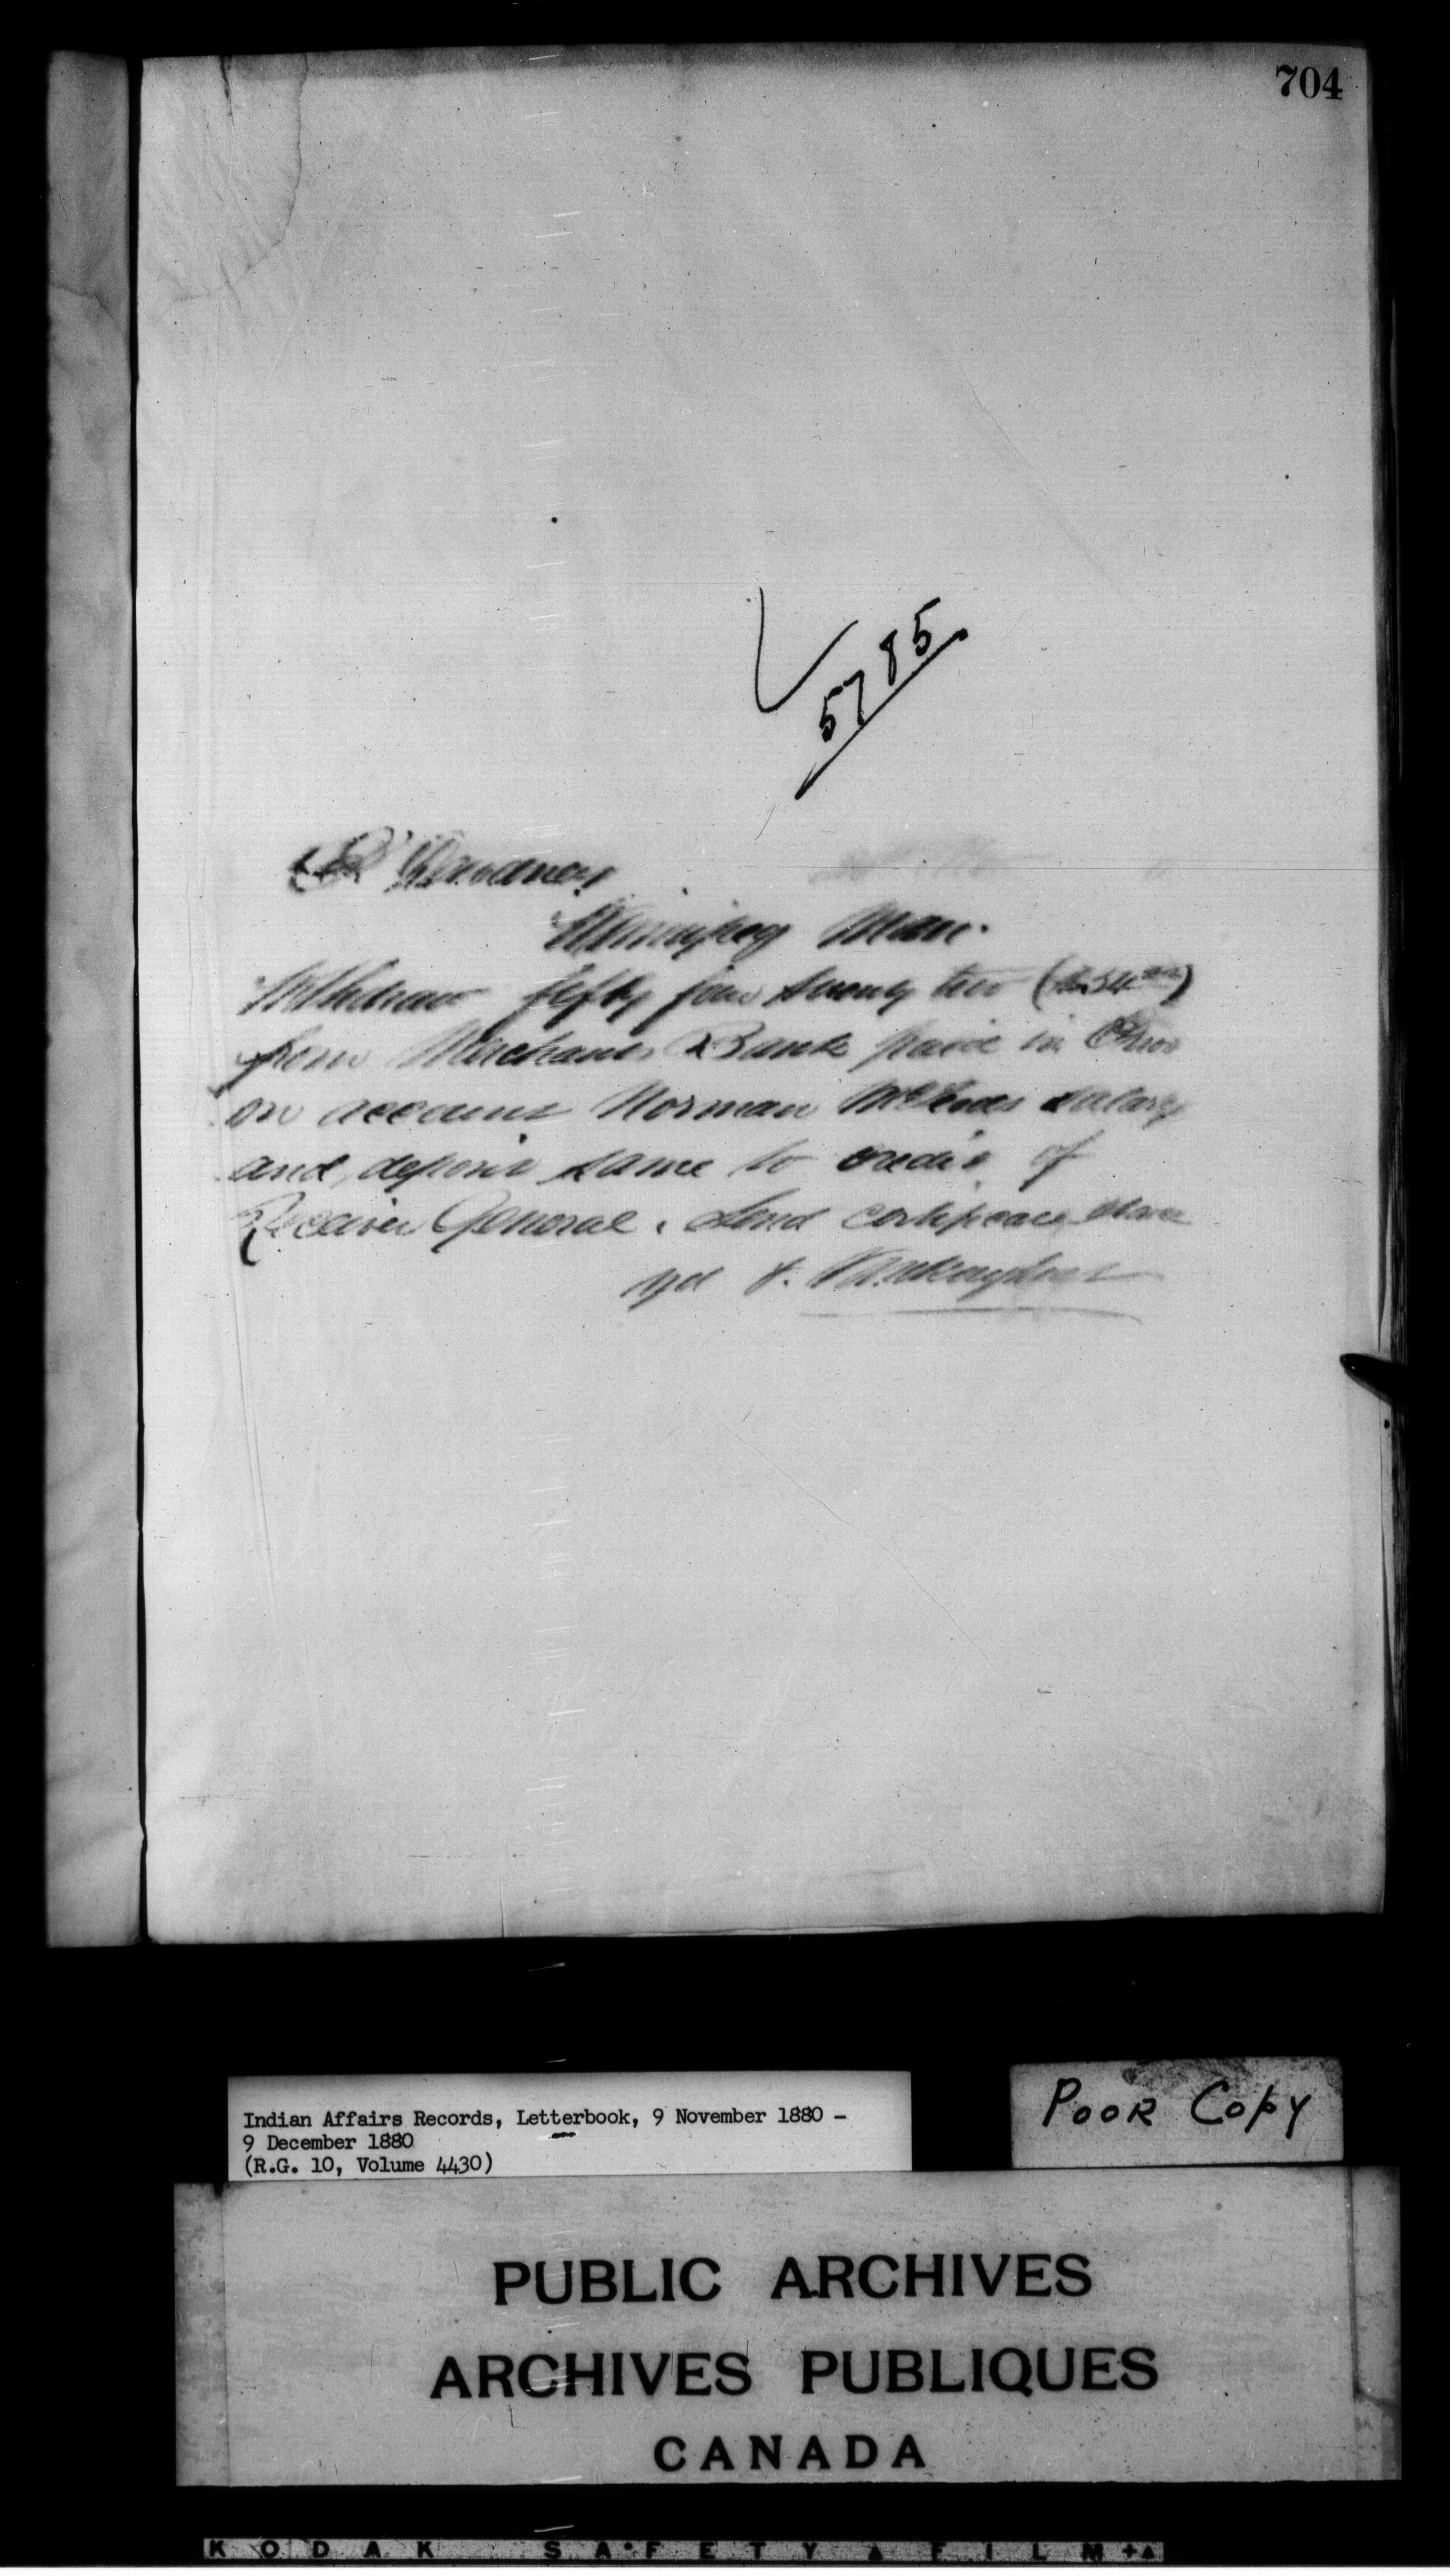 704
5785
Winnipeg Man.
Withdraw fifty four twenty two
from Merchants Bank paid in
on account Norman salary
and deposit same to credit of
Receiver General. Send certificate
L. Vankoughnet
Indian Affairs Records, Letterbook, 9 November 1880 –
9 December 1880
(R.G. 10, Volume 4430)
POOR COPY
PUBLIC ARCHIVES
ARCHIVES PUBLIQUES
CANADA
KODAK SAFETY FILM